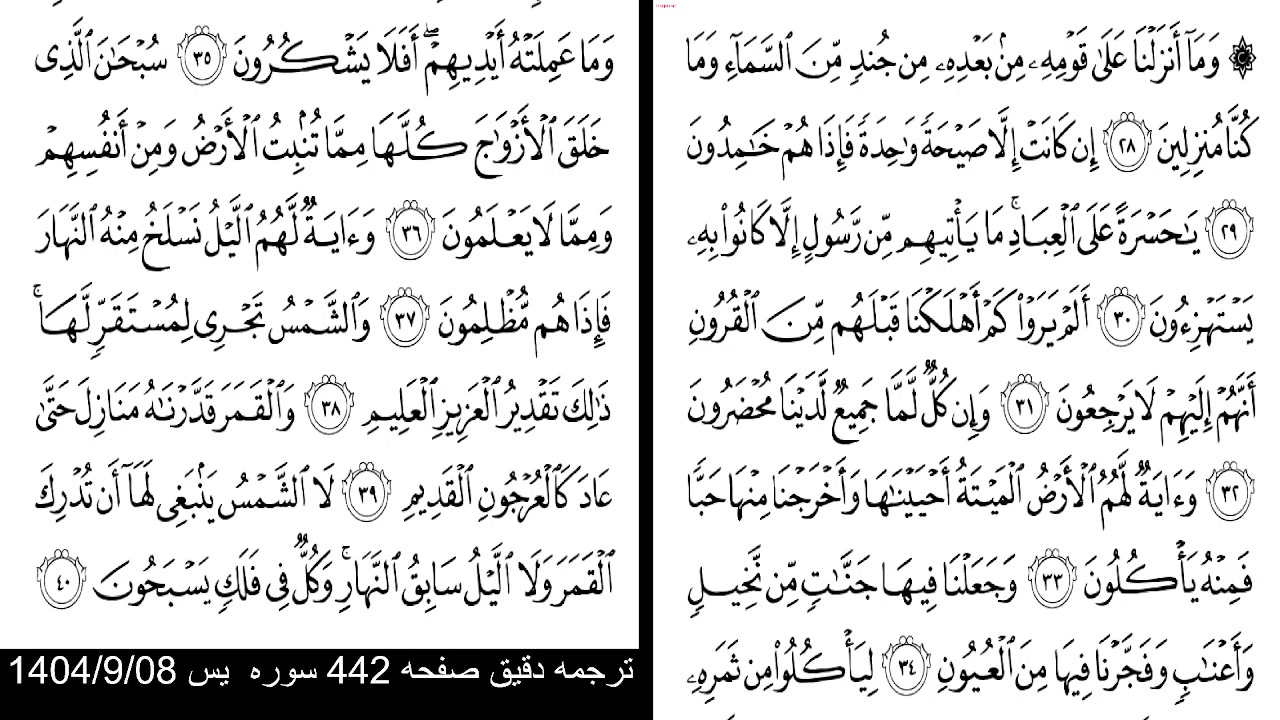 وَمَآ أَنزَلۡنَا عَلَىٰ قَوۡمِهِۦ مِنۢ بَعۡدِهِۦ مِن جُندٖ مِّنَ ٱلسَّمَآءِ وَمَا
كُنَّا مُنزِلِينَ ٢٨ إِن كَانَتۡ إِلَّا صَيۡحَةٗ وَٰحِدَةٗ فَإِذَا هُمۡ خَٰمِدُونَ
٢٩ يَٰحَسۡرَةً عَلَى ٱلۡعِبَادِۚ مَا يَأۡتِيهِم مِّن رَّسُولٍ إِلَّا كَانُواْ بِهِۦ
يَسۡتَهۡزِءُونَ ٣٠ أَلَمۡ يَرَوۡاْ كَمۡ أَهۡلَكۡنَا قَبۡلَهُم مِّنَ ٱلۡقُرُونِ
أَنَّهُمۡ إِلَيۡهِمۡ لَا يَرۡجِعُونَ ٣١ وَإِن كُلّٞ لَّمَّا جَمِيعٞ لَّدَيۡنَا مُحۡضَرُونَ
٣٢ وَءَايَةٞ لَّهُمُ ٱلۡأَرۡضُ ٱلۡمَيۡتَةُ أَحۡيَيۡنَٰهَا وَأَخۡرَجۡنَا مِنۡهَا حَبّٗا
فَمِنۡهُ يَأۡكُلُونَ ٣٣ وَجَعَلۡنَا فِيهَا جَنَّٰتٖ مِّن نَّخِيلٖ
وَأَعۡنَٰبٖ وَفَجَّرۡنَا فِيهَا مِنَ ٱلۡعُيُونِ ٣٤ لِيَأۡكُلُواْ مِن ثَمَرِهِۦ
وَمَا عَمِلَتۡهُ أَيۡدِيهِمۡۚ أَفَلَا يَشۡكُرُونَ ٣٥ سُبۡحَٰنَ ٱلَّذِي
خَلَقَ ٱلۡأَزۡوَٰجَ كُلَّهَا مِمَّا تُنۢبِتُ ٱلۡأَرۡضُ وَمِنۡ أَنفُسِهِمۡ
وَمِمَّا لَا يَعۡلَمُونَ ٣٦ وَءَايَةٞ لَّهُمُ ٱلَّيۡلُ نَسۡلَخُ مِنۡهُ ٱلنَّهَارَ
فَإِذَا هُم مُّظۡلِمُونَ ٣٧ وَٱلشَّمۡسُ تَجۡرِي لِمُسۡتَقَرّٖ لَّهَاۚ
ذَٰلِكَ تَقۡدِيرُ ٱلۡعَزِيزِ ٱلۡعَلِيمِ ٣٨ وَٱلۡقَمَرَ قَدَّرۡنَٰهُ مَنَازِلَ حَتَّىٰ
عَادَ كَٱلۡعُرۡجُونِ ٱلۡقَدِيمِ ٣٩ لَا ٱلشَّمۡسُ يَنۢبَغِي لَهَآ أَن تُدۡرِكَ
ٱلۡقَمَرَ وَلَا ٱلَّيۡلُ سَابِقُ ٱلنَّهَارِۚ وَكُلّٞ فِي فَلَكٖ يَسۡبَحُونَ ٤٠
ترجمه دقیق صفحه 442 سوره یس 1404/9/08